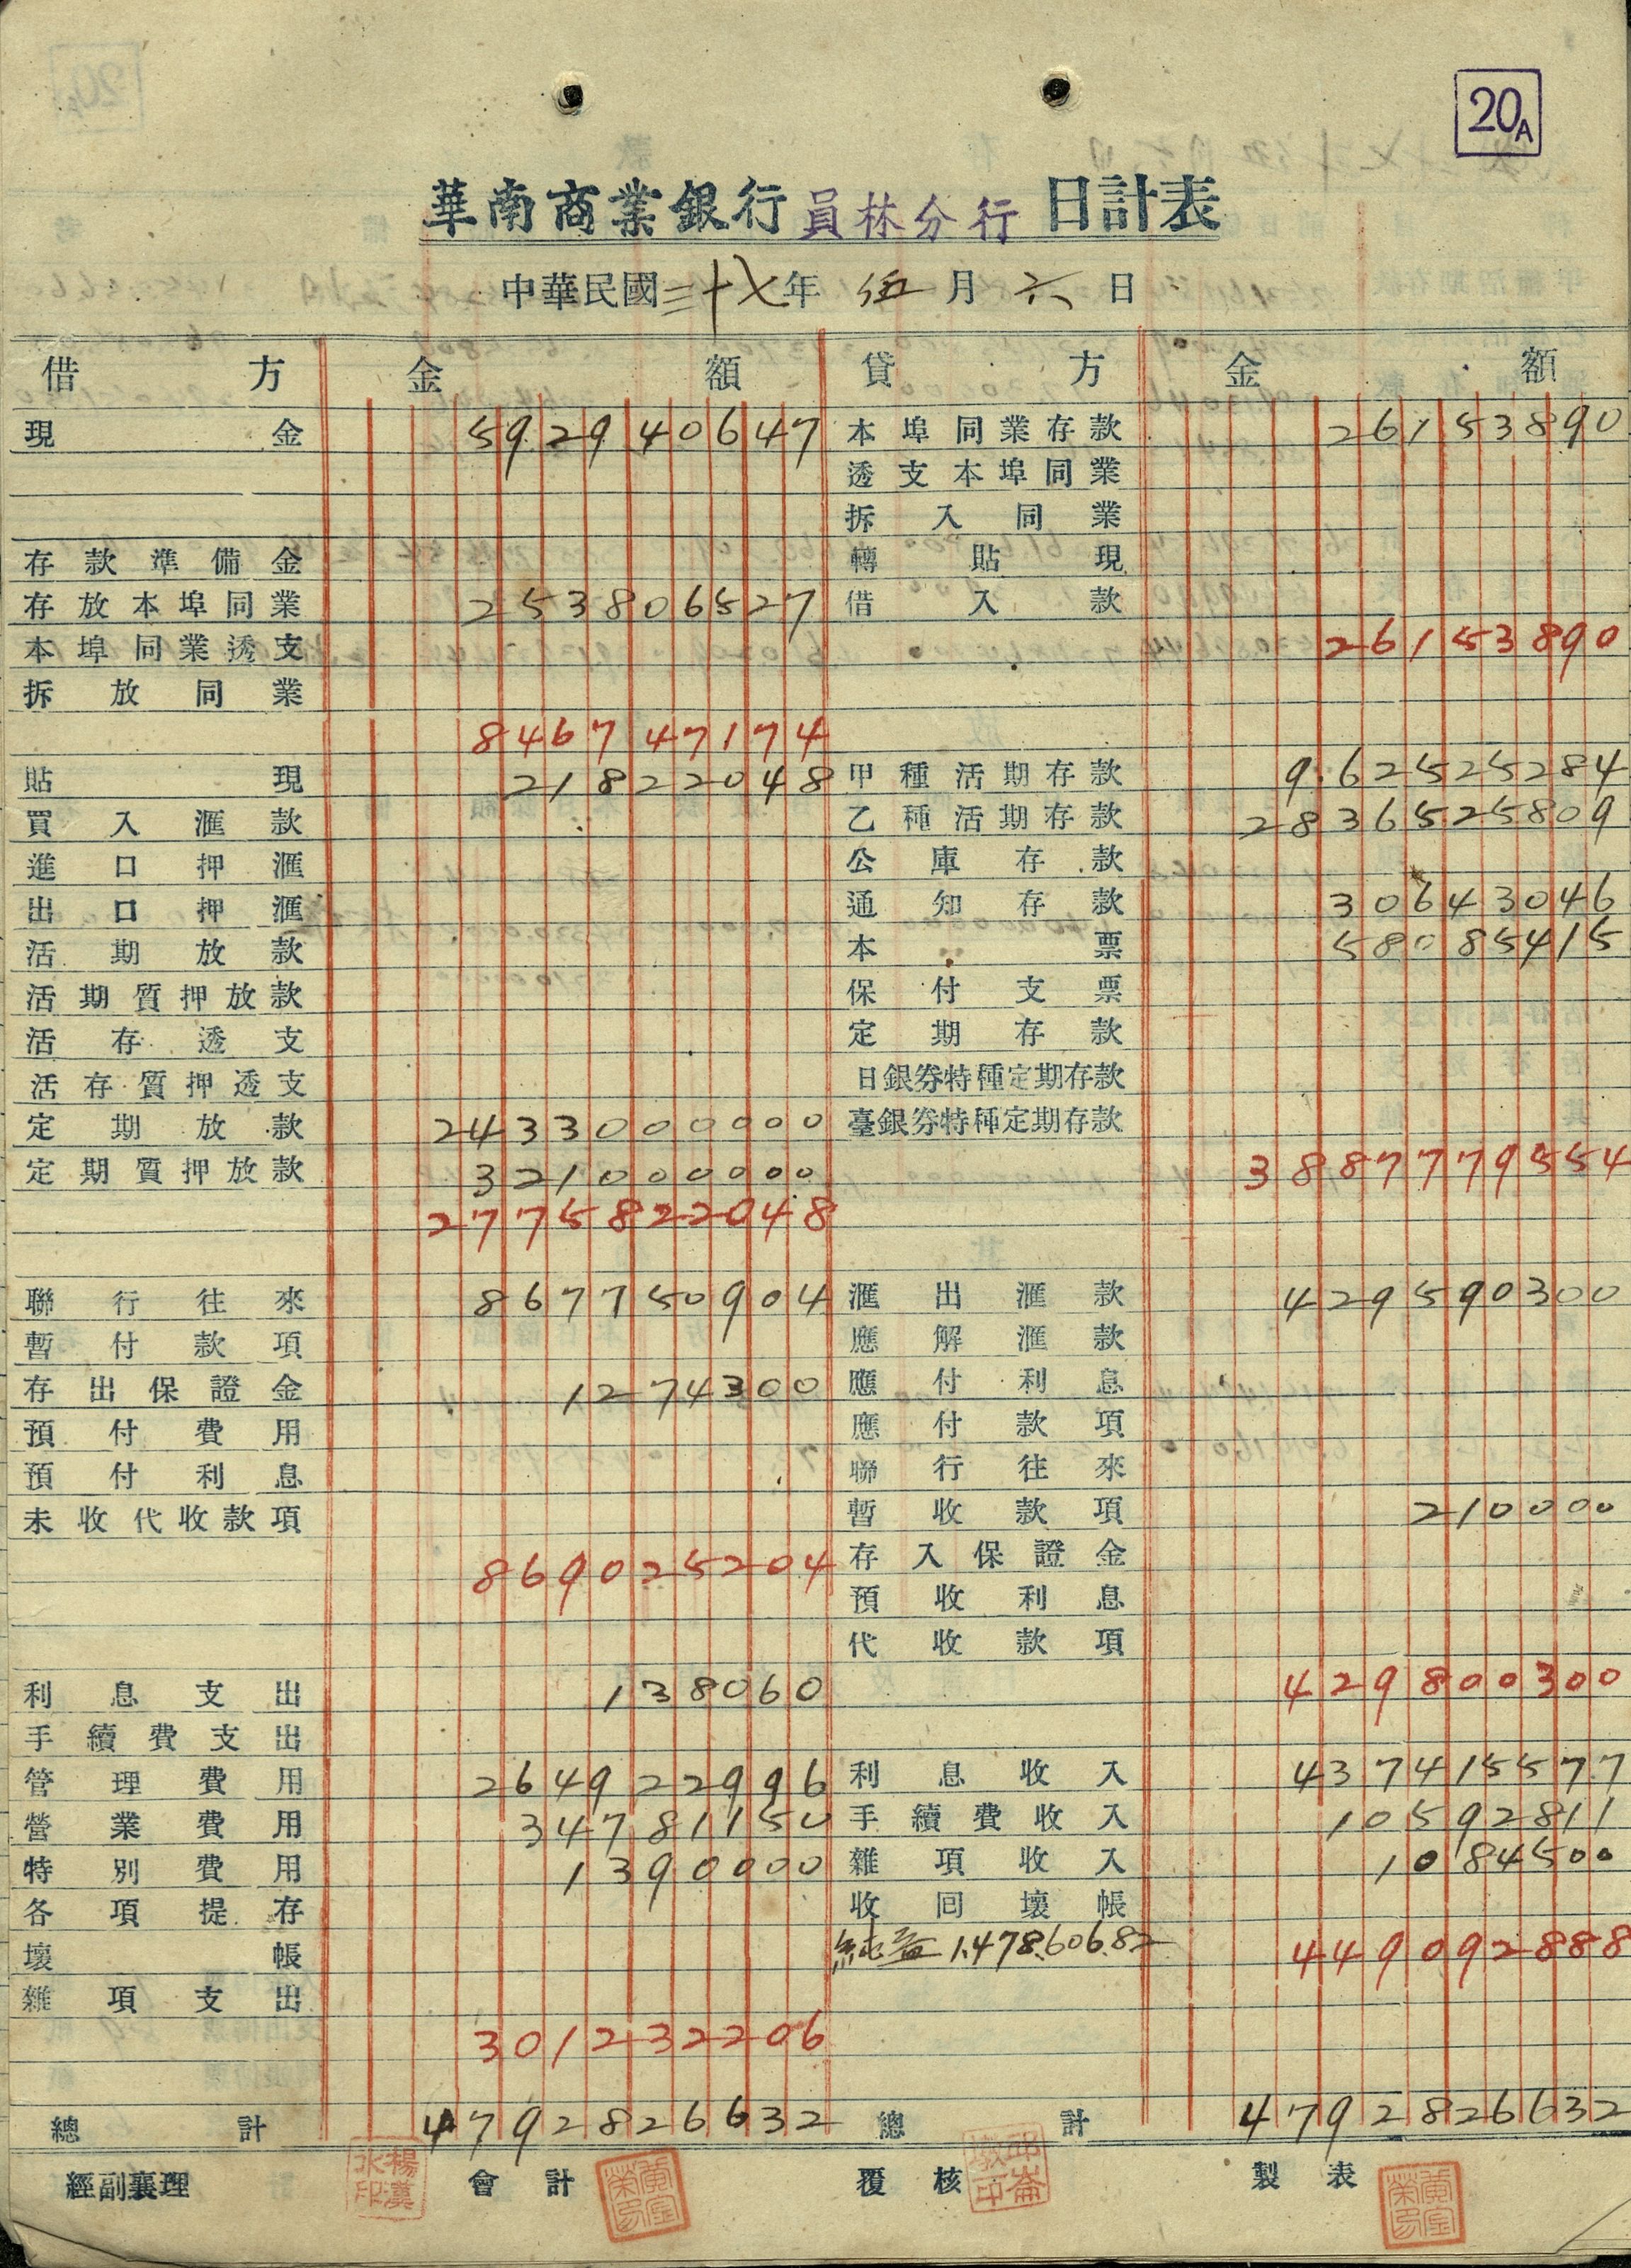 20A
華南商業銀行 員林分行 日計表
中華民國三十七年 伍月 六日
借方 金額 貸方 金額
現金 592940647 本埠同業存款 26153890
透支本埠同業
拆入同業
存款準備金 轉貼現
存放本埠同業 253806527 借入款
本埠同業透支 26153890
拆放同業
846747174
貼現 21822048 甲種活期存款 962525284
買入滙款 乙種活期存款 2836525809
進口押滙 公庫存款
出口押滙 通知存款 30643046
活期放款 本票 58085415
活期質押放款 保付支票
活存透支 定期存款
活存質押透支 日銀券特種定期存款
定期放款 2433000000 臺銀券特種定期存款
定期質押放款 321000000 3887779554
2775822048
聯行往來 867750904 滙出滙款 429590300
暫付款項 應解滙款
存出保證金 1274300 應付利息
預付費用 應付款項
預付利息 聯行往來
未收代收款項 暫收款項 210000
869025204 存入保證金
預收利息
代收款項
利息支出 138060 429800300
手續費支出
管理費用 264922996 利息收入 437415577
營業費用 34781150 手續費收入 10592811
特別費用 1390000 雜項收入 1084500
各項提存 收回壞帳
壞帳 純益 1,478,606.82 449092888
雜項支出
301232206
總計 4792826632 總計 4792826632
經副襄理 會計 覆核 製表